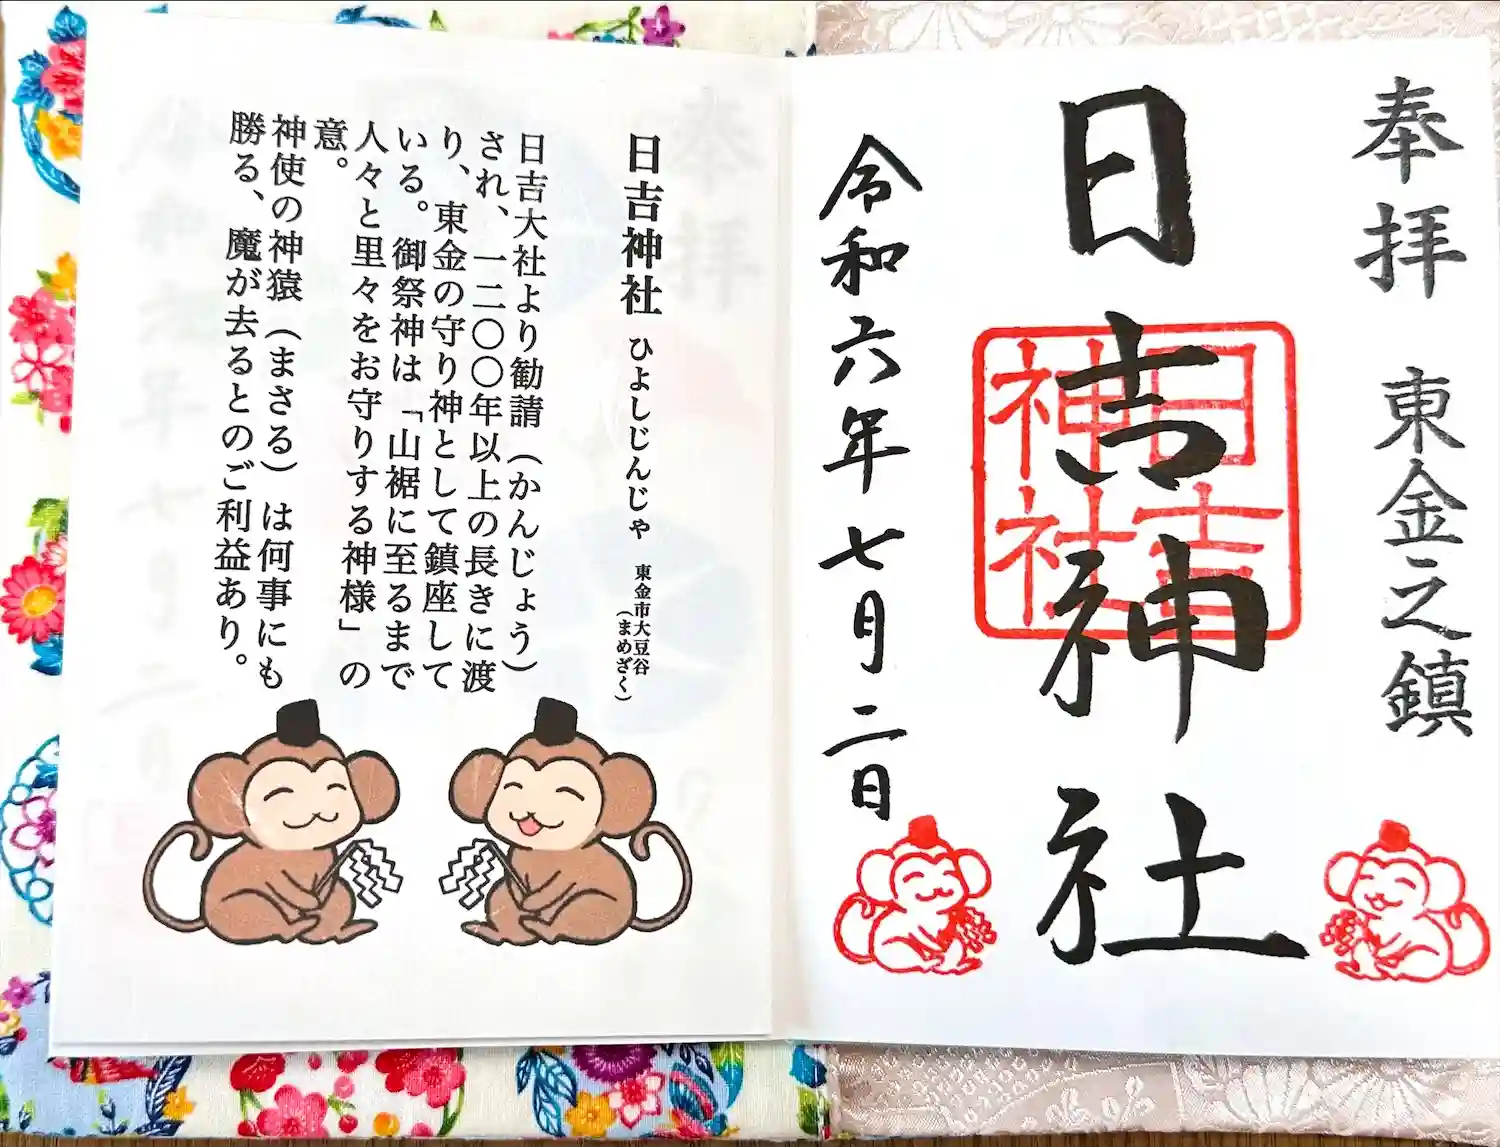 奉拝　東金之鎮
日吉神社
日吉
神社
令和六年七月二日
日吉神社　ひよしじんじゃ　東金市大豆谷
（まめざく）
日吉大社より勧請（かんじょう）
され、一二〇〇年以上の長きに渡
り、東金の守り神として鎮座して
いる。御祭神は「山裾に至るまで
人々と里々をお守りする神様」の
意。
神使の神猿（まさる）は何事にも
勝る、魔が去るとのご利益あり。